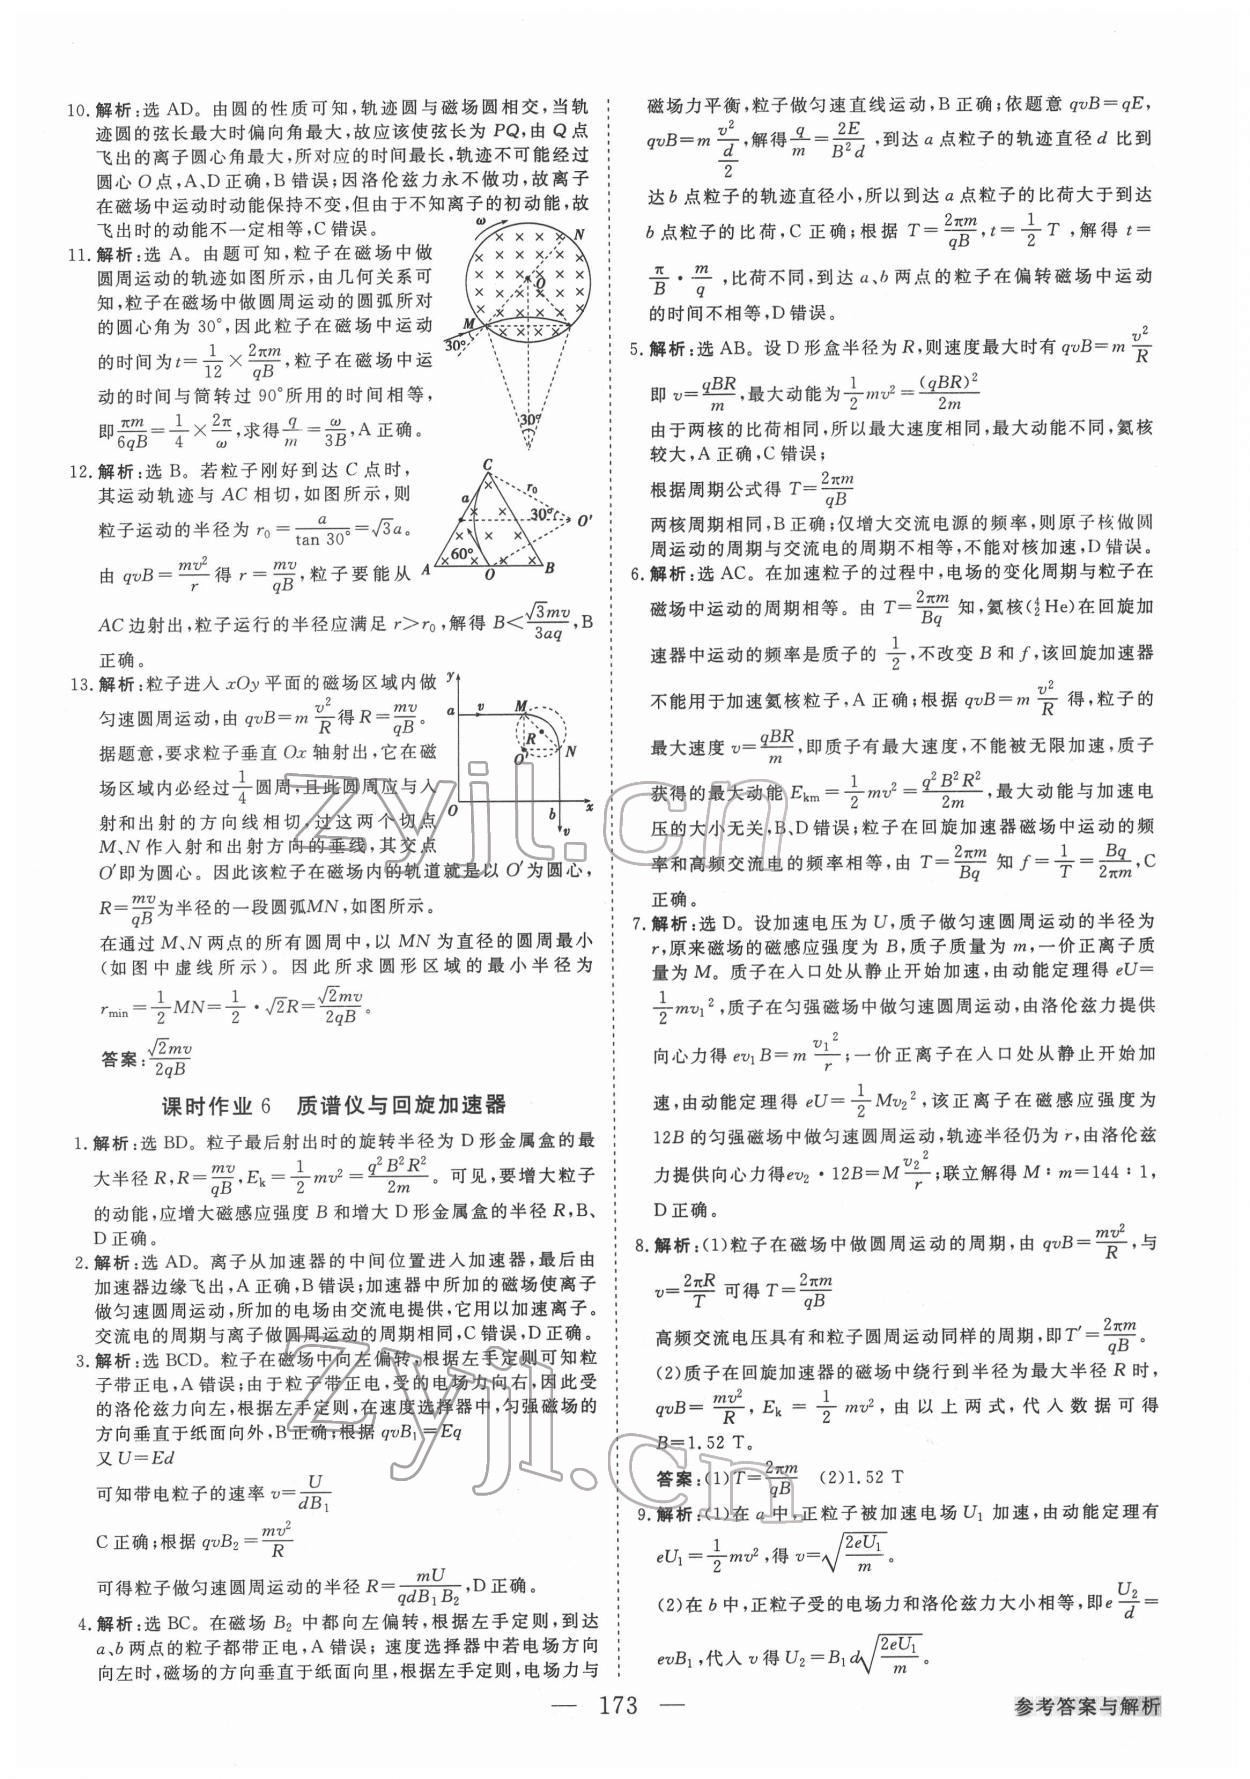 10. 解析:选 AD。由圆的性质可知,轨迹圆与磁场圆相交,当轨
迹圆的弦长最大时偏向角最大,故应该使弦长为 PQ,由 Q 点
飞出的离子圆心角最大,所对应的时间最长,轨迹不可能经过
圆心 O 点,A、D 正确,B 错误;因洛伦兹力永不做功,故离子
在磁场中运动时动能保持不变,但由于不知离子的初动能,故
飞出时的动能不一定相等,C 错误。
11. 解析:选 A。由题可知,粒子在磁场中做
圆周运动的轨迹如图所示,由几何关系可
知,粒子在磁场中做圆周运动的圆弧所对
的圆心角为 30°,因此粒子在磁场中运动
的时间为 t=1/12×2πm/qB,粒子在磁场中运
动的时间与筒转过 90°所用的时间相等,
即 πm/6qB=1/4×2π/ω,求得 q/m=ω/3B,A 正确。
ω N O M 30° 30°
12. 解析:选 B。若粒子刚好到达 C 点时,
其运动轨迹与 AC 相切,如图所示,则
粒子运动的半径为 r₀=a/tan 30°=√3a。
由 qvB=mv²/r 得 r=mv/qB,粒子要能从
AC 边射出,粒子运行的半径应满足 r>r₀,解得 B<√3mv/3aq,B
正确。
C a r₀ 30° O′ 60° A O B
13. 解析:粒子进入 xOy 平面的磁场区域内做
匀速圆周运动,由 qvB=m v²/R 得 R=mv/qB。
据题意,要求粒子垂直 Ox 轴射出,它在磁
场区域内必经过 1/4 圆周,且此圆周应与入
射和出射的方向线相切,过这两个切点
M、N 作入射和出射方向的垂线,其交点
O′即为圆心。因此该粒子在磁场内的轨道就是以 O′为圆心,
R=mv/qB 为半径的一段圆弧MN,如图所示。
y a v M R N O′ O b x v
在通过 M、N 两点的所有圆周中,以 MN 为直径的圆周最小
(如图中虚线所示)。因此所求圆形区域的最小半径为
r_min=1/2 MN=1/2·√2R=√2mv/2qB。
答案:√2mv/2qB
课时作业 6 质谱仪与回旋加速器
1. 解析:选 BD。粒子最后射出时的旋转半径为 D 形金属盒的最
大半径 R,R=mv/qB,E_k=1/2 mv²=q²B²R²/2m。可见,要增大粒子
的动能,应增大磁感应强度 B 和增大 D 形金属盒的半径 R,B、
D 正确。
2. 解析:选 AD。离子从加速器的中间位置进入加速器,最后由
加速器边缘飞出,A 正确,B 错误;加速器中所加的磁场使离子
做匀速圆周运动,所加的电场由交流电提供,它用以加速离子。
交流电的周期与离子做圆周运动的周期相同,C 错误,D 正确。
3. 解析:选 BCD。粒子在磁场中向左偏转,根据左手定则可知粒
子带正电,A 错误;由于粒子带正电,受的电场力向右,因此受
的洛伦兹力向左,根据左手定则,在速度选择器中,匀强磁场的
方向垂直于纸面向外,B 正确;根据 qvB₁=Eq
又 U=Ed
可知带电粒子的速率 v=U/dB₁
C 正确;根据 qvB₂=mv²/R
可得粒子做匀速圆周运动的半径 R=mU/qdB₁B₂,D 正确。
4. 解析:选 BC。在磁场 B₂ 中都向左偏转,根据左手定则,到达
a、b 两点的粒子都带正电,A 错误;速度选择器中若电场方向
向左时,磁场的方向垂直于纸面向里,根据左手定则,电场力与
磁场力平衡,粒子做匀速直线运动,B 正确;依题意 qvB=qE,
qvB=m v²/(d/2),解得 q/m=2E/B²d,到达 a 点粒子的轨迹直径 d 比到
达 b 点粒子的轨迹直径小,所以到达 a 点粒子的比荷大于到达
b 点粒子的比荷,C 正确;根据 T=2πm/qB,t=1/2 T,解得 t=
π/B·m/q,比荷不同,到达 a、b 两点的粒子在偏转磁场中运动
的时间不相等,D 错误。
5. 解析:选 AB。设 D 形盒半径为 R,则速度最大时有 qvB=m v²/R
即 v=qBR/m,最大动能为 1/2 mv²=(qBR)²/2m
由于两核的比荷相同,所以最大速度相同,最大动能不同,氦核
较大,A 正确,C 错误;
根据周期公式得 T=2πm/qB
两核周期相同,B 正确;仅增大交流电源的频率,则原子核做圆
周运动的周期与交流电的周期不相等,不能对核加速,D 错误。
6. 解析:选 AC。在加速粒子的过程中,电场的变化周期与粒子在
磁场中运动的周期相等。由 T=2πm/Bq 知,氦核(⁴₂He)在回旋加
速器中运动的频率是质子的 1/2,不改变 B 和 f,该回旋加速器
不能用于加速氦核粒子,A 正确;根据 qvB=m v²/R 得,粒子的
最大速度 v=qBR/m,即质子有最大速度,不能被无限加速,质子
获得的最大动能 E_km=1/2 mv²=q²B²R²/2m,最大动能与加速电
压的大小无关,B、D 错误;粒子在回旋加速器磁场中运动的频
率和高频交流电的频率相等,由 T=2πm/Bq 知 f=1/T=Bq/2πm,C
正确。
7. 解析:选 D。设加速电压为 U,质子做匀速圆周运动的半径为
r,原来磁场的磁感应强度为 B,质子质量为 m,一价正离子质
量为 M。质子在入口处从静止开始加速,由动能定理得 eU=
1/2 mv₁²,质子在匀强磁场中做匀速圆周运动,由洛伦兹力提供
向心力得 ev₁B=m v₁²/r;一价正离子在入口处从静止开始加
速,由动能定理得 eU=1/2 Mv₂²,该正离子在磁感应强度为
12B 的匀强磁场中做匀速圆周运动,轨迹半径仍为 r,由洛伦兹
力提供向心力得ev₂·12B=M v₂²/r;联立解得 M∶m=144∶1,
D 正确。
8. 解析:(1)粒子在磁场中做圆周运动的周期,由 qvB=mv²/R,与
v=2πR/T 可得 T=2πm/qB
高频交流电压具有和粒子圆周运动同样的周期,即T′=2πm/qB。
(2)质子在回旋加速器的磁场中绕行到半径为最大半径 R 时,
qvB=mv²/R,E_k=1/2 mv²,由以上两式,代入数据可得
B=1.52 T。
答案:(1)T=2πm/qB (2)1.52 T
9. 解析:(1)在 a 中,正粒子被加速电场 U₁ 加速,由动能定理有
eU₁=1/2 mv²,得 v=√(2eU₁/m)。
(2)在 b 中,正粒子受的电场力和洛伦兹力大小相等,即e U₂/d=
evB₁,代入 v 得 U₂=B₁d√(2eU₁/m)。
zyjl.cn
zyjl.cn
— 173 —
参考答案与解析